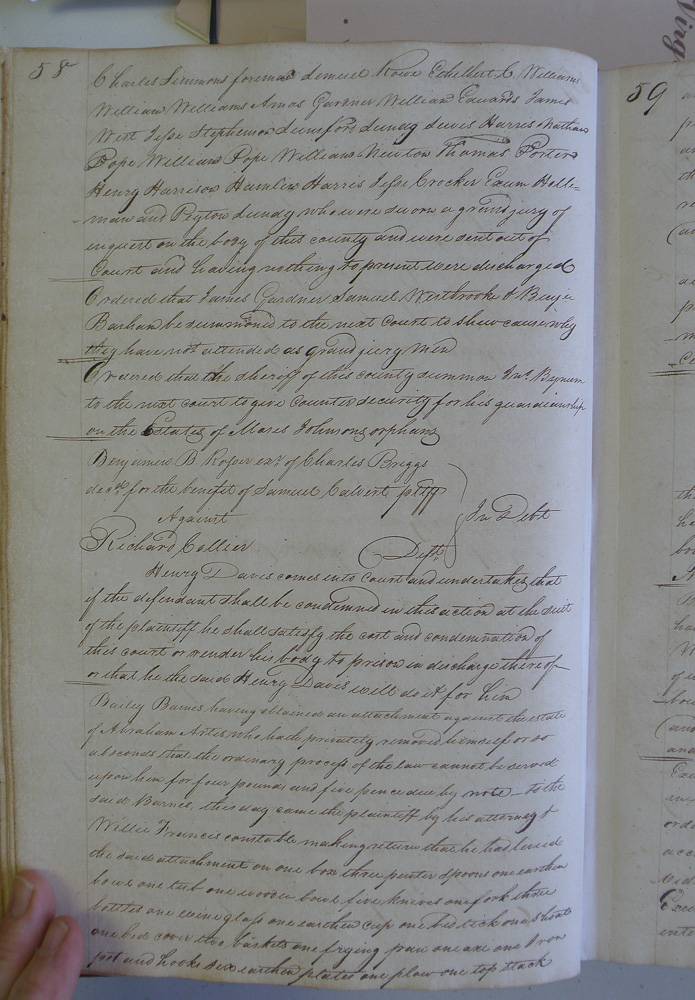 58
Charles Simmons foreman Lemuel Rowe Ethelbert C. Williams
William Williams Amos Gardner William Edwards James
West Jesse Stephenson Lunsford Lundy Lewis Harris Nathan
Pope William Pope William Newton Thomas Porter
Henry Harrison Hamlin Harris Jesse Crocker Exum Holle=
man and Peyton Lundy who were sworn a grand jury of
inquest on the body of this county and were sent out of
Court and having nothing to present were discharged
Ordered that James Gardner Samuel Westbrooke & Benja
Barham be summoned to the next Court to shew cause why
they have not attended as grand jury men
Ordered that the sheriff of this county summon Jno. Bynum
to the next court to give Counter security for his guardianship
on the Estates of Moses Johnsons orphans
Benjamin B Roper exr. of Charles Briggs
decd. for the benefit of Samuel Calvert pltff
Against
In Debt
Richard Collier Deft.
Henry Davis comes into Court and undertakes that
if the defendant shall be condemned in this action at the suit
of the plaintiff he shall satisfy the cost and condemnation of
this court or render his body to prison in discharge thereof
or that he the said Henry Davis will do it for him
Bailey Barnes having obtained an attachment against the estate
of Abraham Artis who hath privately removed himself or so
absconds that the ordinary process of the law cannot be served
upon him for four pounds and five pence due by note to the
said Barnes, this day came the plaintiff by his attorney &
Willie Francis constable making return that he had levied
the said attachment on one box three pewter spoons one earthen
bowl one tub one wooden bowl five knives one fork three
bottles one wine glass one earthen cup one bed tick one sheet
one bed cover two baskets one frying pan one axe one Iron
pot and hooks six earthen plates one plow one top stack
59